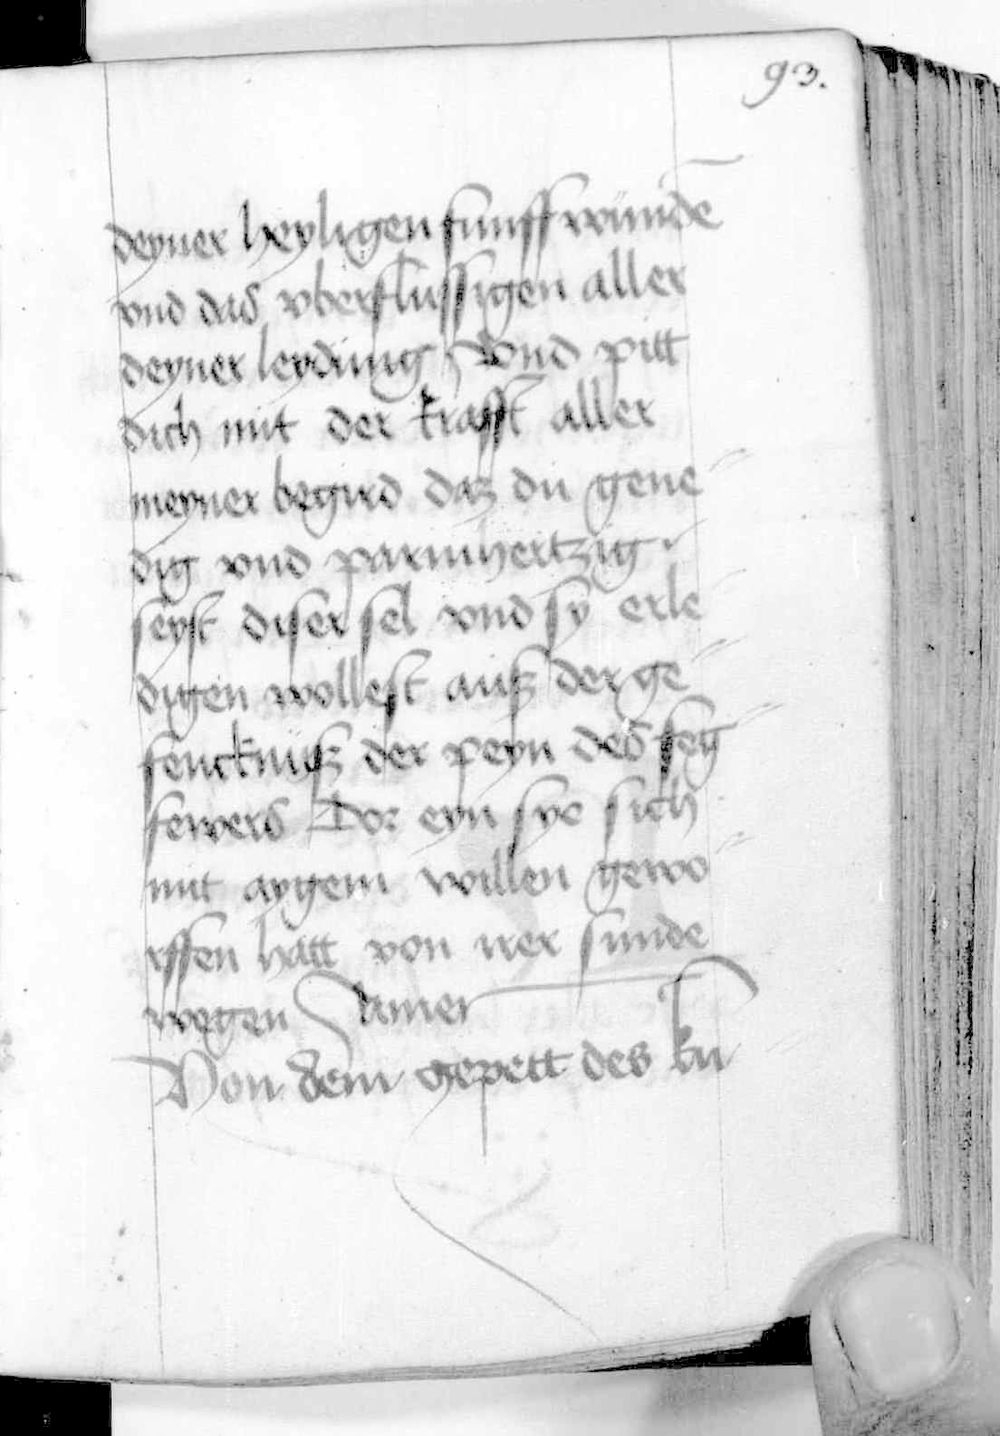 93.
deyner heyligen funff wunde͂
vnd das vberflussigen aller
deyner leyding Vnd pitt
dich mit der krafft aller
meyner begird daz du gene
dig vnd parmhertzig
seyst diser sel vnd sy erle
digen wollest ausz der ge
fencknusz der peyn des feg
fewers Dor eyn sye sich
mit aygem willen gewo
rffen hatt von irer sunde
wegen Amen
Von dem gepett des ku